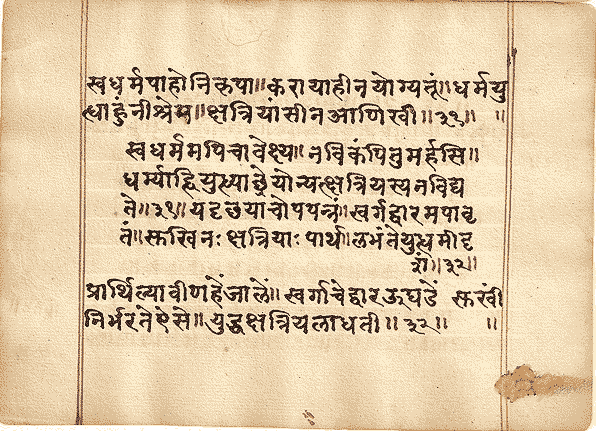 स्वधर्मपाहोनिकृपा॥करायाहीनयोग्यतूं॥धर्मयु
ध्धाहुंनीश्रेय॥क्षत्रियांसीनआणिखी॥३१॥ ॥
स्वधर्ममपिचावेक्ष्य॥नविकंपितुमर्हसि॥
धर्म्याद्धियुध्धाछ्रेयोन्यत्क्षत्रियस्यनविद्य
ते॥३१॥यदृछयाचोपपन्नं॥स्वर्गद्वारमपावृ
तं॥सुखिनःक्षत्रियाःपार्थ॥लभंतेयुध्धमीदृ
शं॥३२॥
प्रार्थिल्यावीणहेंजालें॥स्वर्गाचेद्वारऊघडें सुखी
निर्भरतेऐसे॥युद्धक्षत्रियलाधती॥३२॥ ॥